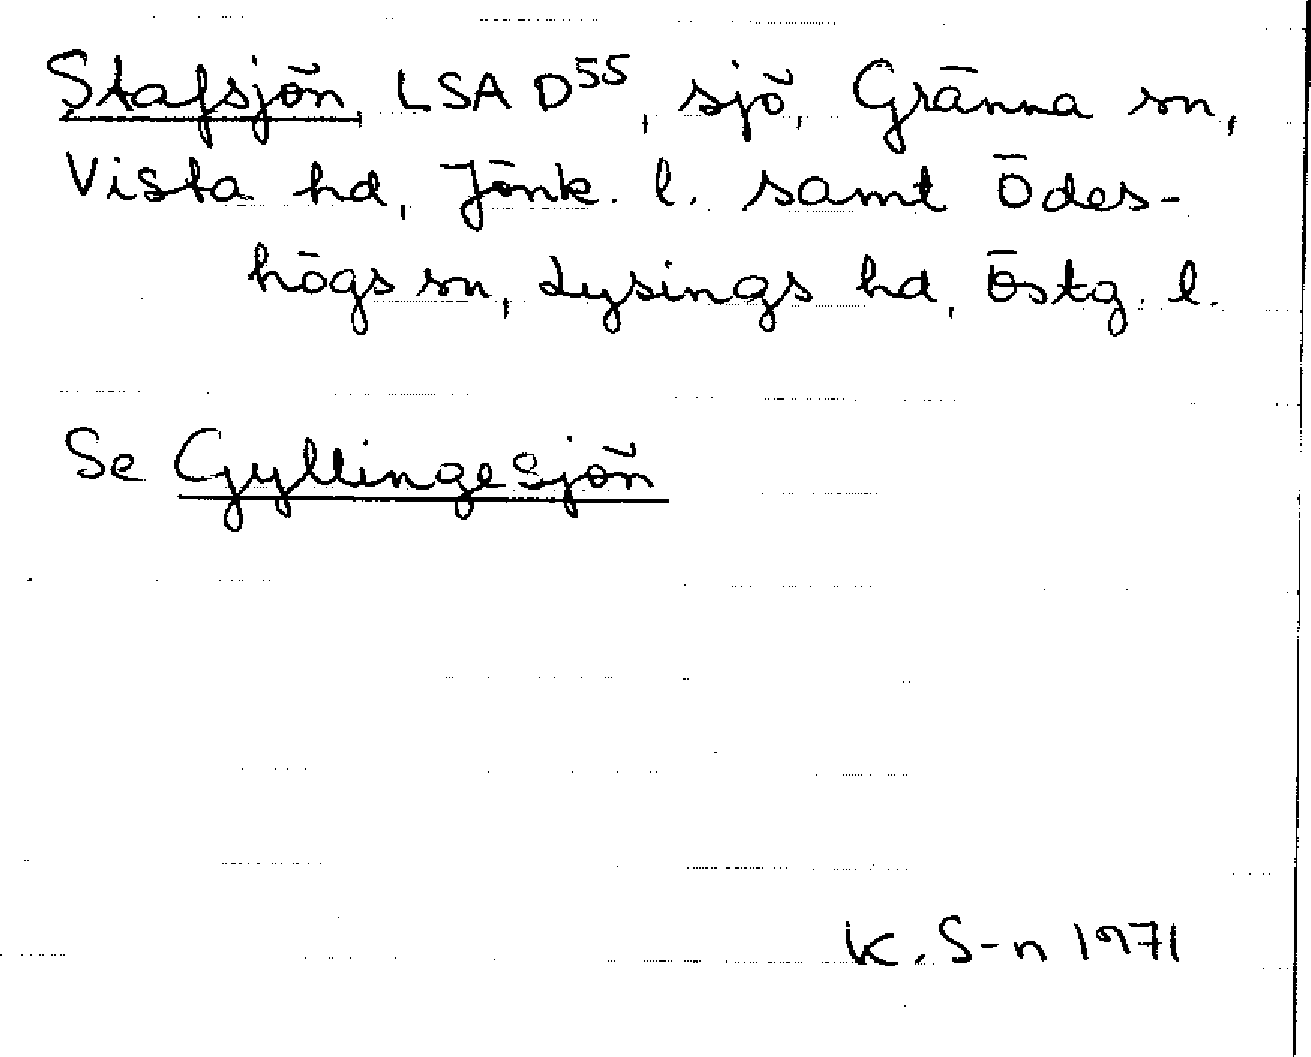 Stafsjön, LSA D55, sjö, Gränna sn,
Vista hd, Jönk. l. samt Ödes-
högs sn, Lysings hd, Östg. l.
Se Gyllingesjön
K. S-n 1971